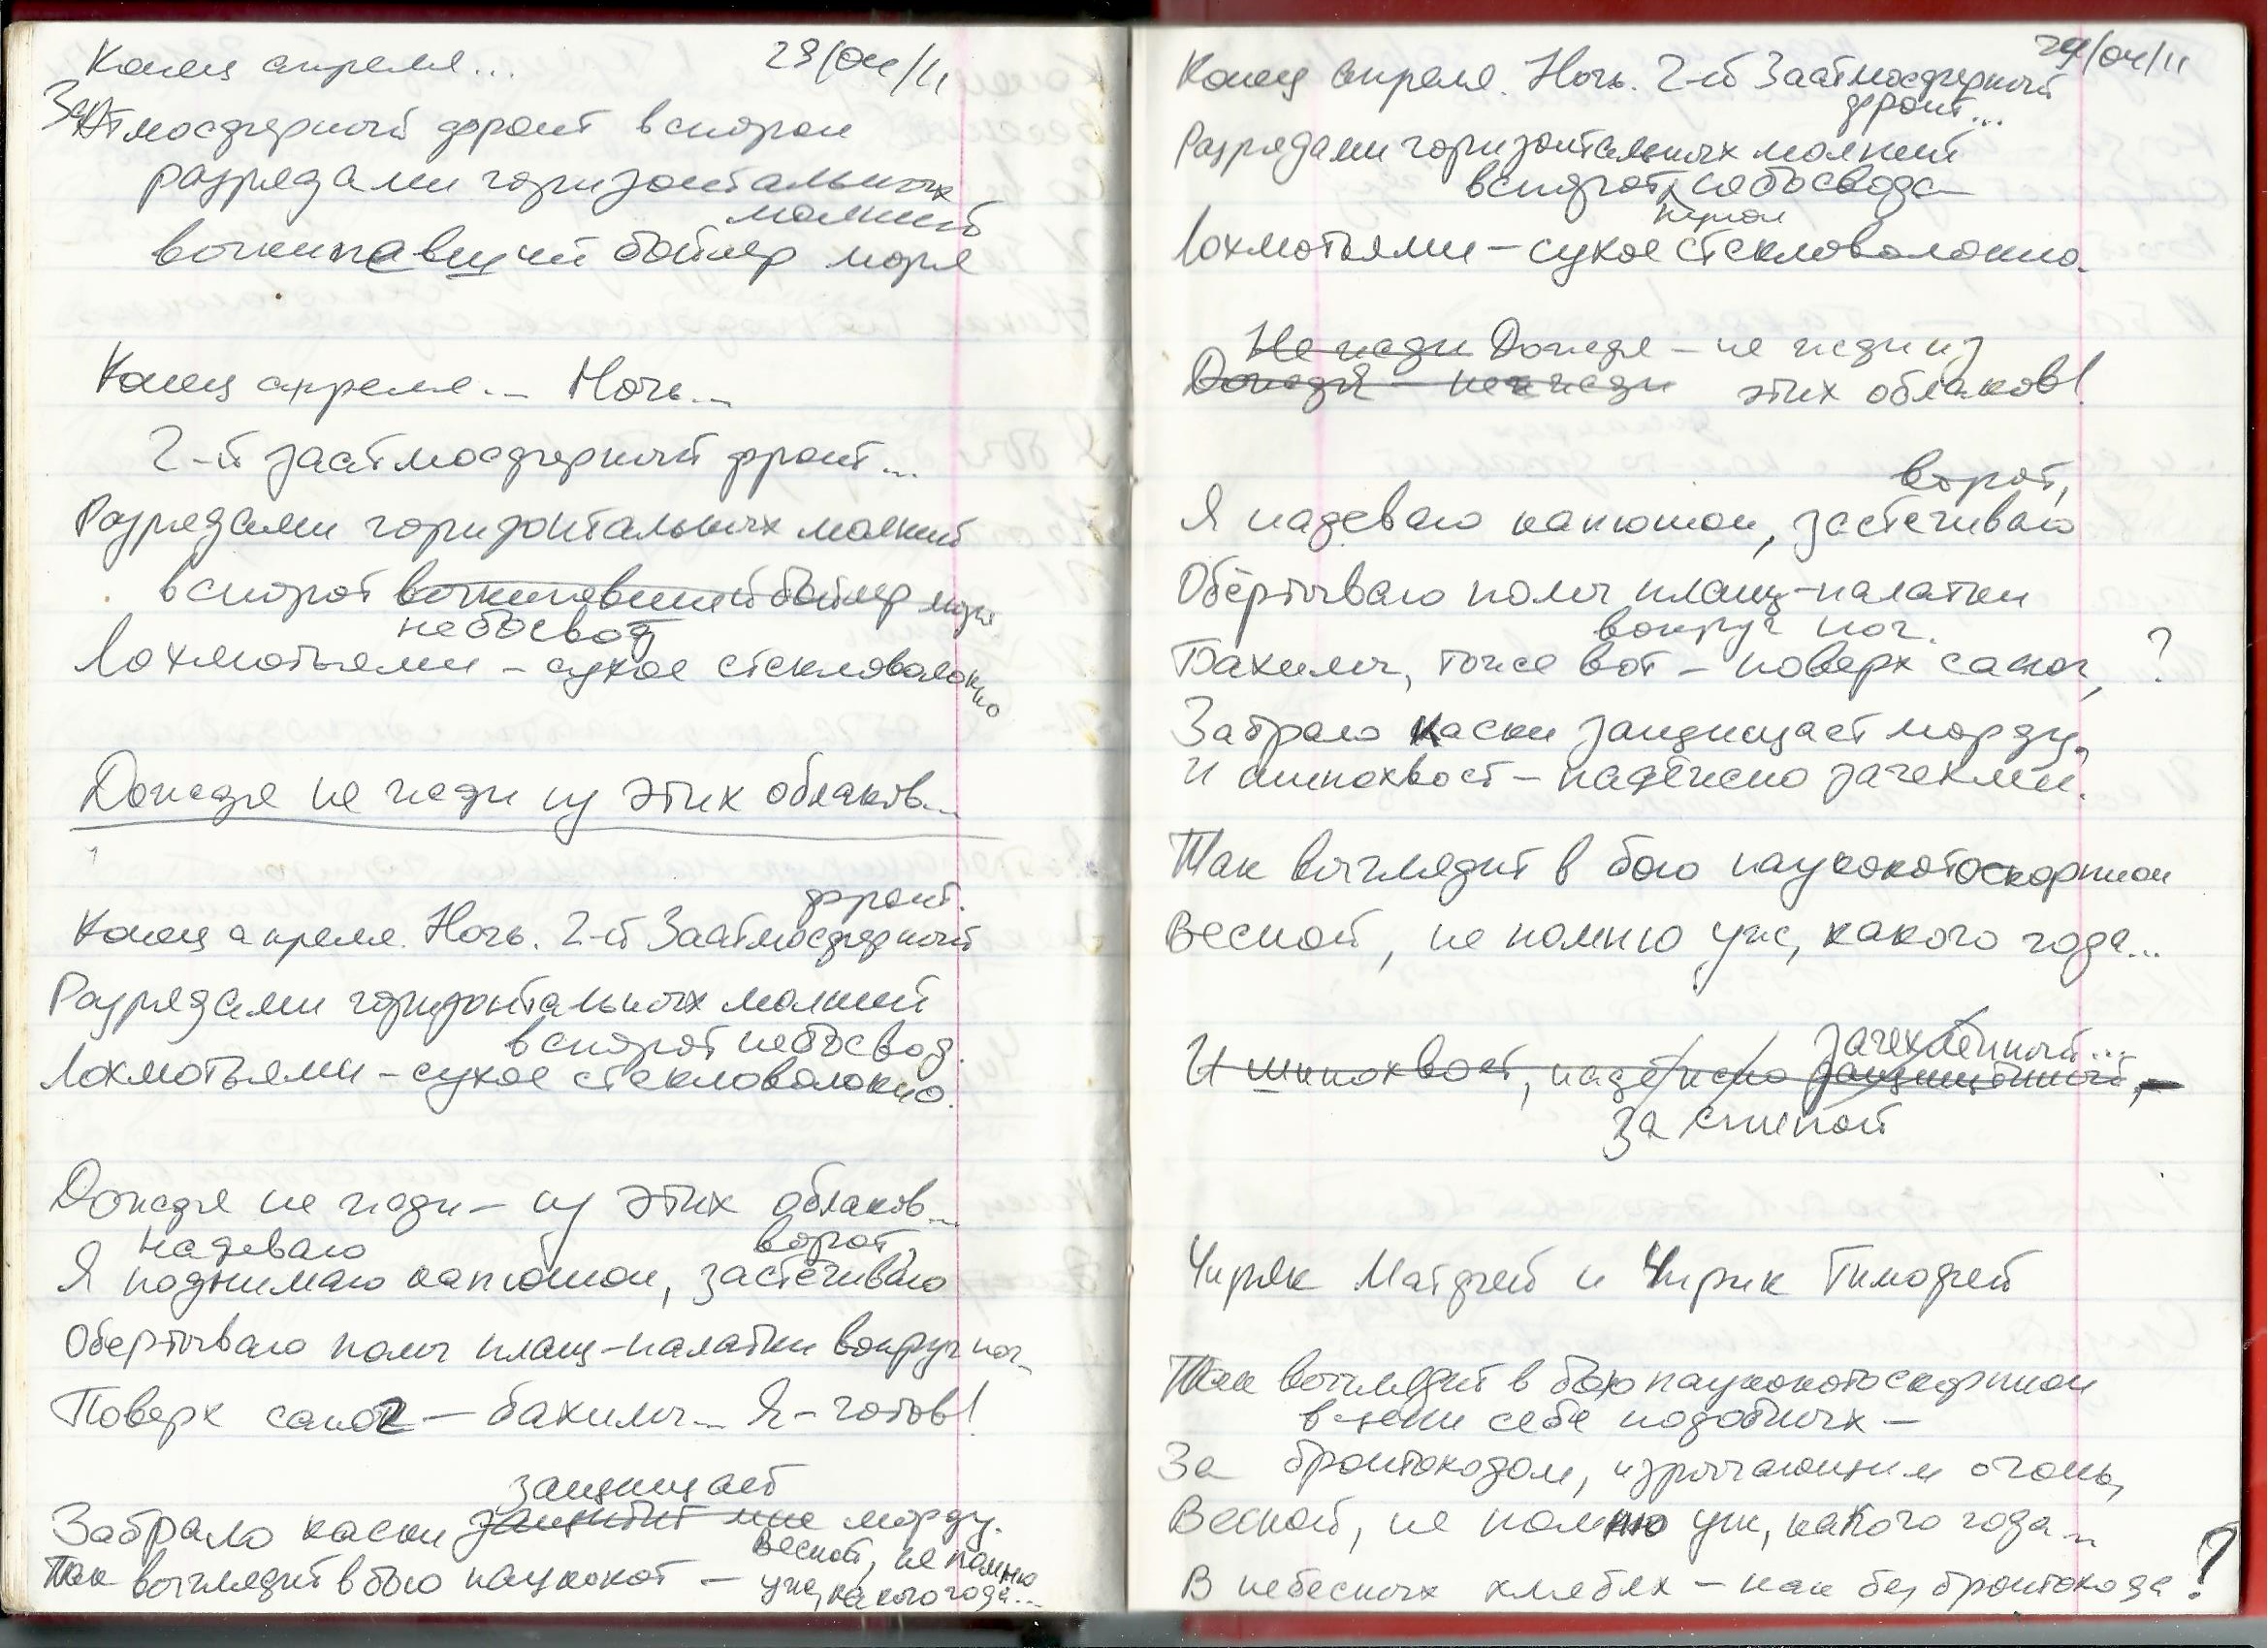 Конец апреля... 29/04/11
Заатмосферный фронт вспорон
разрядами горизонтальных
молний
выкипавший бойлер моря
Конец апреля... Ночь...
2-й заатмосферный фронт...
Разрядами горизонтальных молний
вспорот выкипевший бойлер моря
небосвод
Лохмотьями – сухое стекловолокно
Дождя не жди из этих облаков...
фронт.
Конец апреля. Ночь. 2-й Заатмосферный
Разрядами горизонтальных молний
вспорот небосвод.
Лохмотьями – сухое стекловолокно.
Дождя не жди – из этих облаков...
надеваю ворот,
Я поднимаю капюшон, застёгиваю
Обёртываю полы плащ-палатки вокруг ног...
Поверх сапог – бахилы... Я – готов!
защищает
Забрало каски защитит мне морду.
Весной, не помню
Так выглядит в бою паукокот –
уж, какого года...
29/04/11
Конец апреля. Ночь. 2-й Заатмосферный
фронт...
Разрядами горизонтальных молний
вспорот небосвода
купол
Лохмотьями – сухое стекловолокно.
Не жди Дождя – не жди из
Дождя – не жди этих облаков!
ворот,
Я надеваю капюшон, застёгиваю
Обёртываю полы плащ-палатки
вокруг ног.
Бахилы, тоже вот – поверх сапог, ?
Забрало каски защищает морду,
И шипохвост – надёжно зачехлён.
Так выглядит в бою паукокотоскорпион
Весной, не помню уж, какого года...
зачехлённый...
И шипохвост, надёжно защищённый,
за спиной
Чиряк Матфей и Чирик Тимофей
Так выглядит в бою паукокотоскорпион
в цепи себе подобных –
За бронтоходом, изрыгающим огонь,
Весной, не помню уж, какого года...
В небесных хлябях – как без бронтохода?